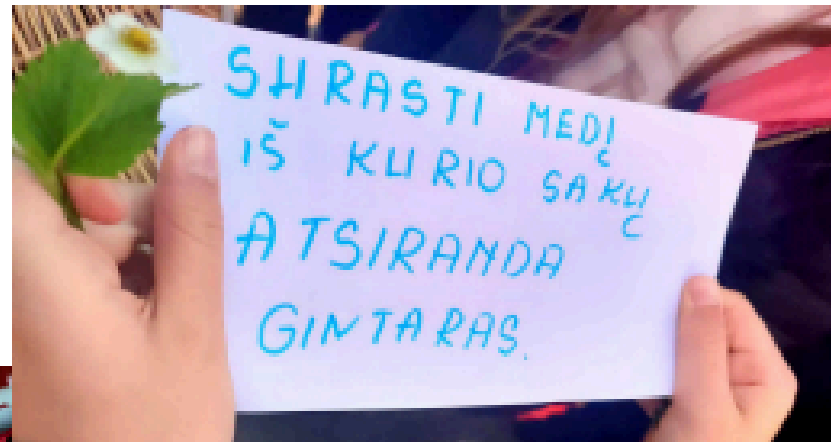 SURASTI MEDĮ
IŠ KURIO SAKŲ
ATSIRANDA
GINTARAS.